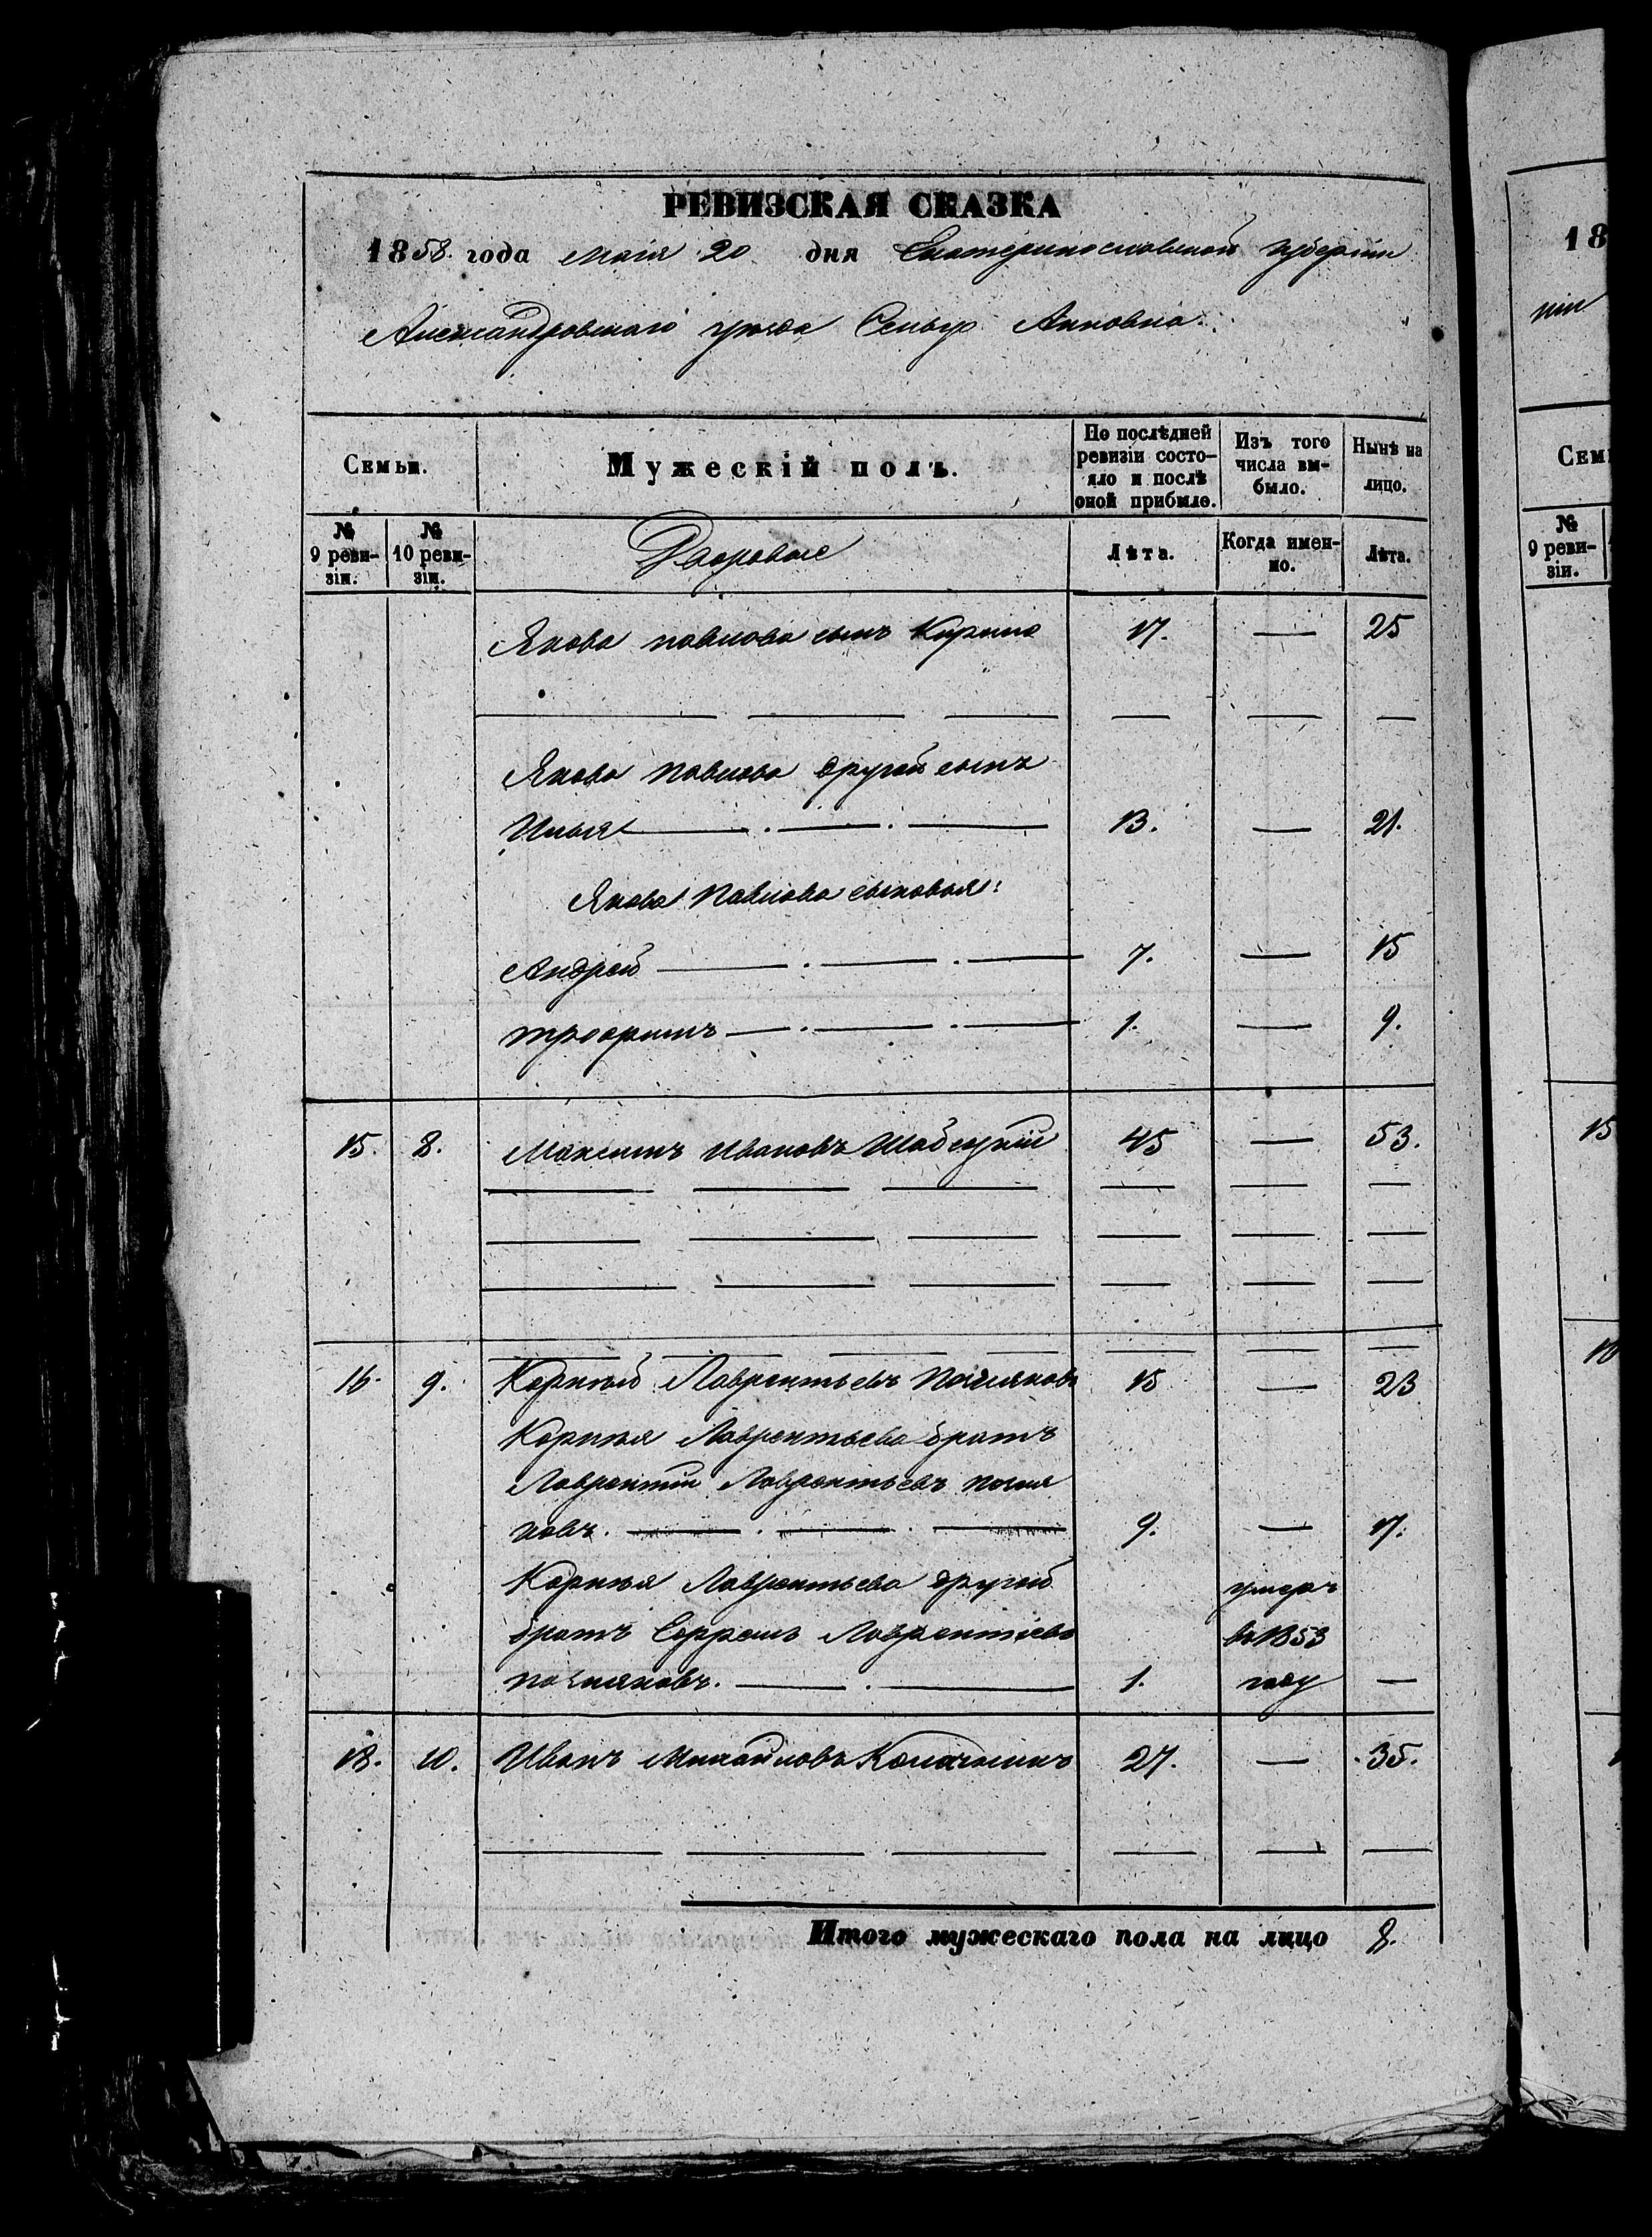 РЕВИЗСКАЯ СКАЗКА
1858. года маія 20 дня Екатеринославской губерніи
Александровскаго уѣзда Сельцо Анновка.
Семьи.
Мужескій полъ.
По послѣдней ревизіи состо-
яло и послѣ оной прибыло.
Изъ того числа вы-
было.
Нынѣ на лицо.
№ 9 реви-
зіи.
№ 10 реви-
зіи.
Дворовые
Лѣта.
Когда имен-
но.
Лѣта.
Якова Павлова сынъ 17. — 25
Якова Павлова другой сынъ
Илья 13. — 21.
Якова Павлова сыновья:
Андрей 7. — 15
1. — 9.
15. 8. Максимъ Ивановъ 45 — 53.
16. 9. Корнѣй Лаврентьевъ 15 — 23
Корнѣя Лаврентьева братъ
Лаврентій Лаврентьевъ
9. — 17.
Корнѣя Лаврентьева другой умеръ
братъ Ефремъ Лаврентіевъ въ 1853
1. году —
18. 10. Иванъ Михайловъ 27. — 35.
Итого мужескаго пола на лицо 8.
18
Сем
№ 9 реви-
зіи.
15
16